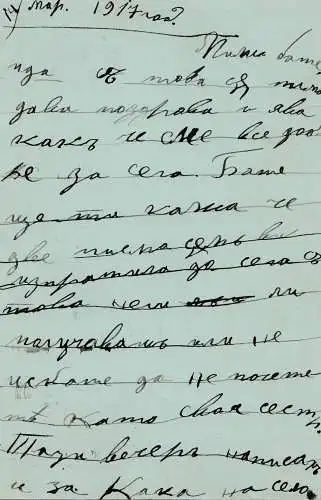 14 мар. 1917 год?
Пиша бате,
ида с това да ти
давя поздрава и явя
какъ че сме все здра
ве за сега. Бате
ще ти кажа че
две писма съмь ви
изпратила до сега с
това чети ли
получавашъ или не
искате да не посете
тъ като своя сест
Тази вечеръ написахъ
и за Кака на село